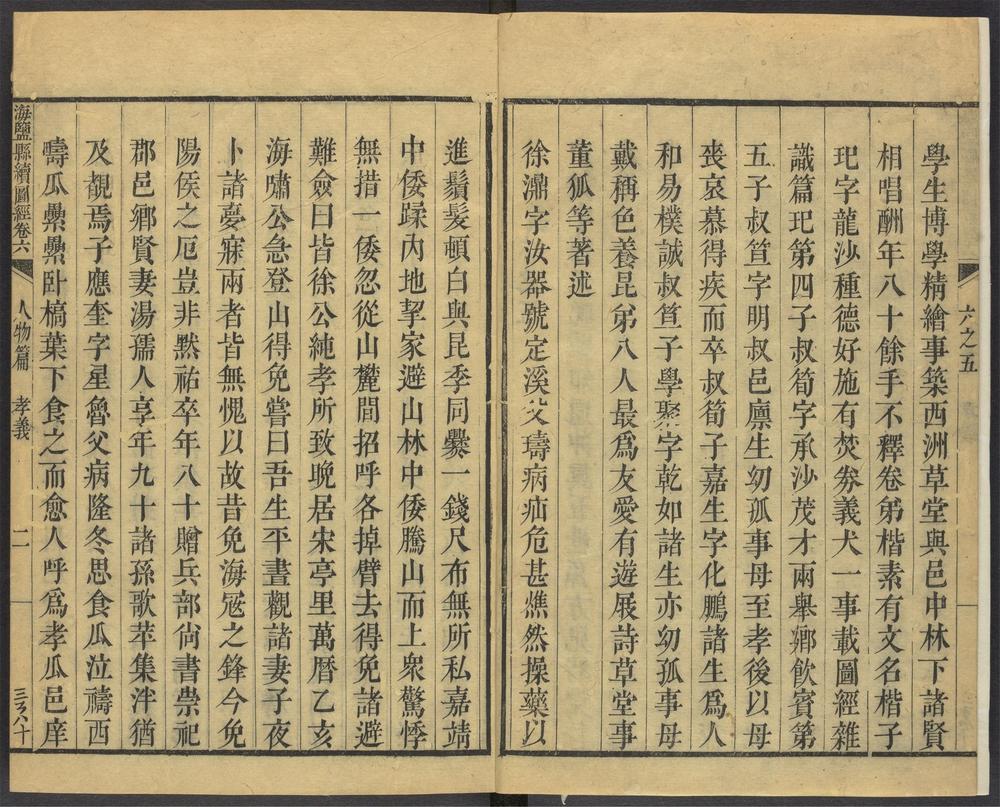 學生博學精繪事築西洲草堂與邑中林下諸賢
相唱酬年八十餘手不釋卷弟楷素有文名楷子
玘字龍沙種德好施有焚劵義犬一事載圖經雜
識篇玘第四子叔筍字承沙茂才兩舉鄉飲賓第
五子叔笪字明叔邑廪生幼孤事母至孝後以母
喪哀慕得疾而卒叔筍子嘉生字化鵬諸生爲人
和易樸誠叔笪子學聚字乾如諸生亦幼孤事母
戴稱色養昆弟八人最爲友愛有遊展詩草堂事
董狐等著述
徐濎字汝器號定溪父璹病疝危甚憔然操藥以
六之五
進鬚髮頓白與昆季同爨一錢尺布無所私嘉靖
中倭躁內地挈家避山林中倭騰山而上衆驚悸
無措一倭忽從山麓間招呼各掉臂去得免諸避
難僉曰皆徐公純孝所致晚居宋亭里萬曆乙亥
海嘯公急登山得免嘗曰吾生平晝觀諸妻子夜
卜諸夢寐兩者皆無愧以故昔免海冦之鋒今免
陽侯之厄豈非默祐卒年八十贈兵部尚書崇祀
郡邑鄉賢妻湯孺人享年九十諸孫歌苹集泮猶
及覩焉子應奎字星魯父病隆冬思食瓜泣禱西
疇瓜纍纍卧槁葉下食之而愈人呼爲孝瓜邑庠
海鹽縣續圖經卷六
人物篇
孝義
二